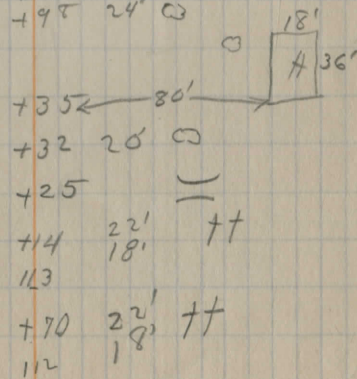 +98 24'
18'
H 36'
+35 80'
+32 20'
+25
+14 22'
18'
113
+70 22'
18'
112